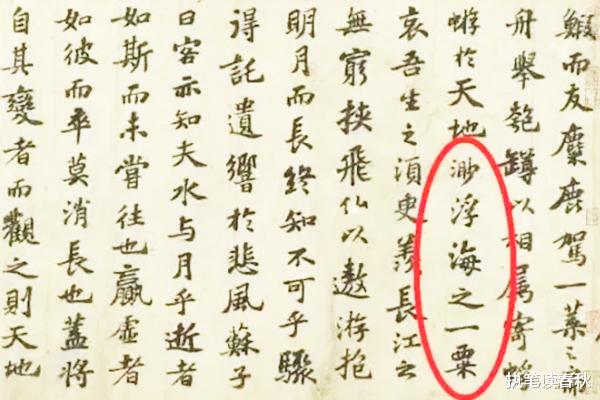 鰕而友麋鹿駕一葉之扁
舟舉匏罇以相屬寄蜉
蝣於天地渺浮海之一粟
哀吾生之須臾羨長江之
無窮挾飛仙以遨游抱
明月而長終知不可乎驟
得託遺響於悲風蘇子
曰客亦知夫水与月乎逝者
如斯而未嘗往也贏虛者
如彼而卒莫消長也蓋將
自其變者而觀之則天地
执笔读春秋